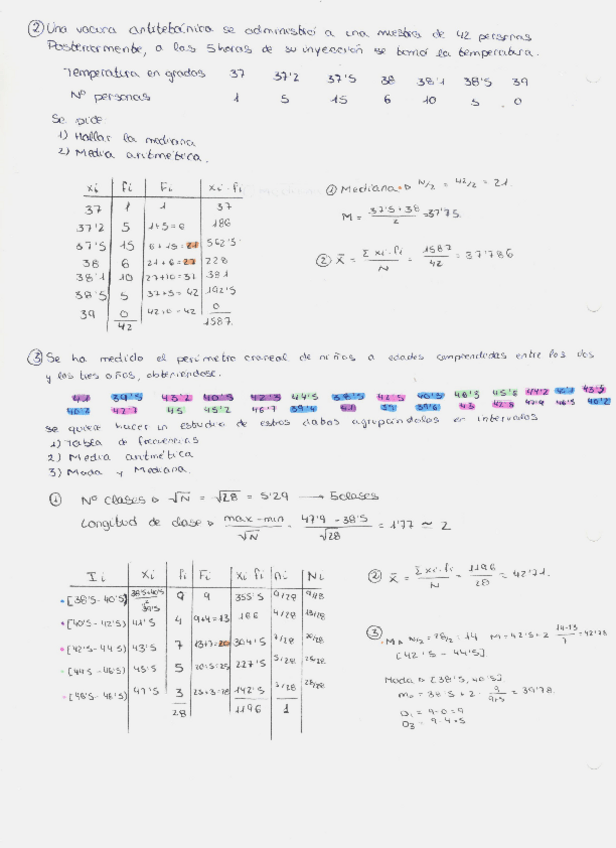 ② Una vacuna antitetánica se administró a una muestra de 42 personas
Posteriormente, a las 5 horas de su inyección se tomó la temperatura.
Temperatura en grados 37 37'2 37'5 38 38'1 38'5 39
Nº personas 1 5 15 6 10 5 0
Se pide
1) Hallar la mediana
2) Media aritmética.
xi fi Fi xi·fi
37 1 1 37
37'2 5 1+5=6 186
37'5 15 6+15=21 562'5
38 6 21+6=27 228
38'1 10 27+10=37 381
38'5 5 37+5=42 192'5
39 0 42+0=42 0
42 1587.
① Mediana N/2 = 42/2 = 21.
M = 37'5+38 / 2 = 37'75.
② x̄ = Σ xi·fi / N = 1587 / 42 = 37'786
③ Se ha medido el perímetro craneal de niños a edades comprendidas entre los dos
y los tres años, obteniéndose.
39'5 44'5 42'5 45'8 44'2
40'2 42'7 45 45'2 39'4 39'6 43 42'8 47'9 40'2
Se quiere hacer un estudio de estos datos agrupándolos en intervalos
1) Tabla de frecuencias
2) Media aritmética
3) Moda y Mediana.
① Nº clases √N = √28 = 5'29 → 5 clases
Longitud de clase max-min / √N = 47'9 - 38'5 / √28 = 1'77 ≃ 2
Ii xi fi Fi xi fi ni Ni
[38'5-40'5) 38'5+40'5 / 2 39'5 9 9 355'5 9/28 9/28
[40'5-42'5) 41'5 4 9+4=13 166 4/28 13/28
[42'5-44'5) 43'5 7 13+7=20 304'5 7/28 20/28
[44'5-46'5) 45'5 5 20+5=25 227'5 5/28 25/28
47'5 3 25+3=28 142'5 3/28 28/28
28 1196 1
② x̄ = Σ xi·fi / N = 1196 / 28 = 42'71.
③ M N/2 = 28/2 = 14 M = 42'5+2 14-13 / 7 = 42'78
[42'5 - 44'5].
Moda [38'5, 40'5].
mo = 38'5 + 2· 9 / 9+5 = 39'78.
D1 = 9-0=9
9-4=5